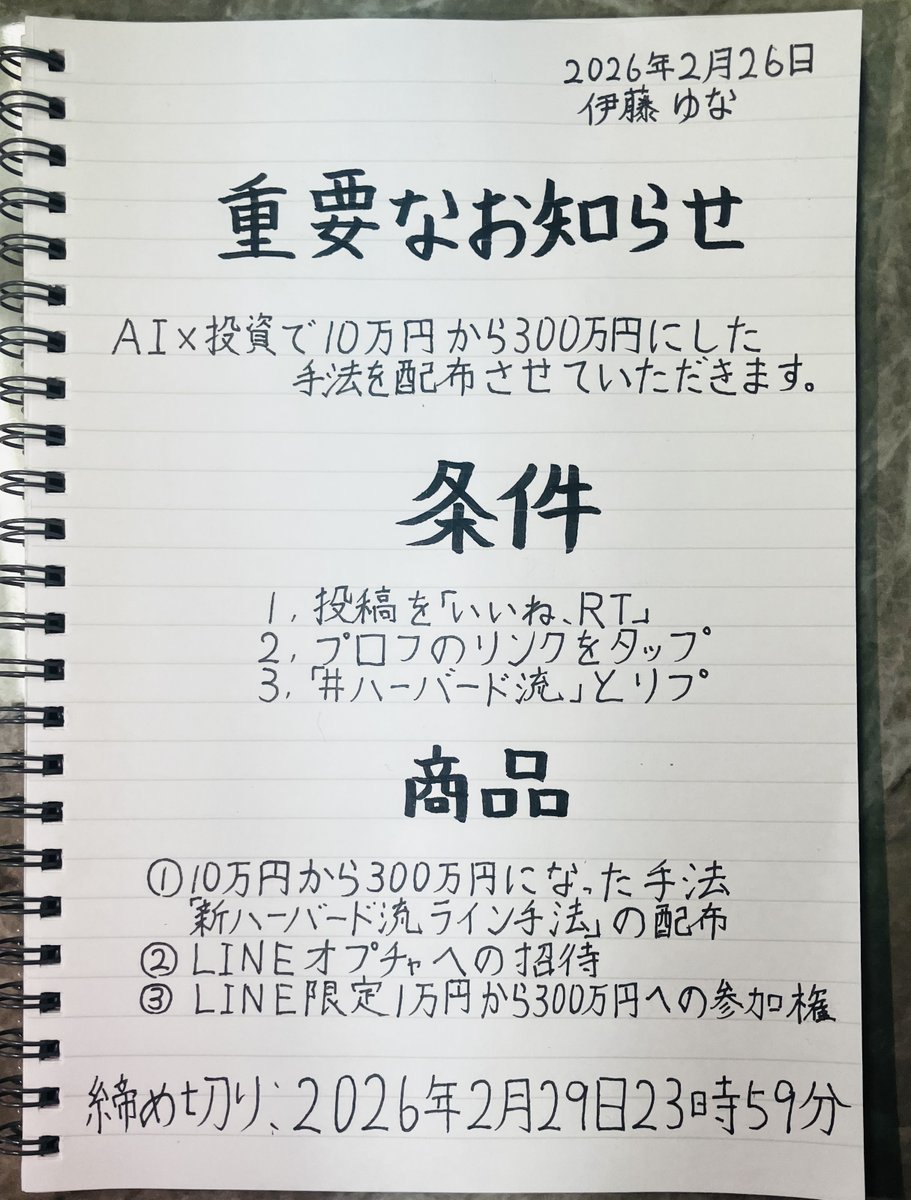 2026年2月26日
伊藤 ゆな
重要なお知らせ
AI×投資で10万円から300万円にした
手法を配布させていただきます。
条件
1, 投稿を「いいね、RT」
2, プロフのリンクをタップ
3, 「#ハーバード流」とリプ
商品
①10万円から300万円になった手法
「新ハーバード流ライン手法」の配布
② LINEオプチャへの招待
③ LINE限定1万円から300万円への参加権
締め切り、2026年2月29日23時59分